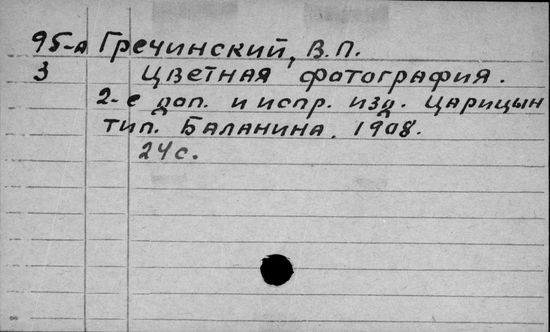 95-А Гречинский, В.П.
3 Цветная фотография.
2-е доп. и испр. изд. Царицын
тип. Баланина, 1908.
24 с.